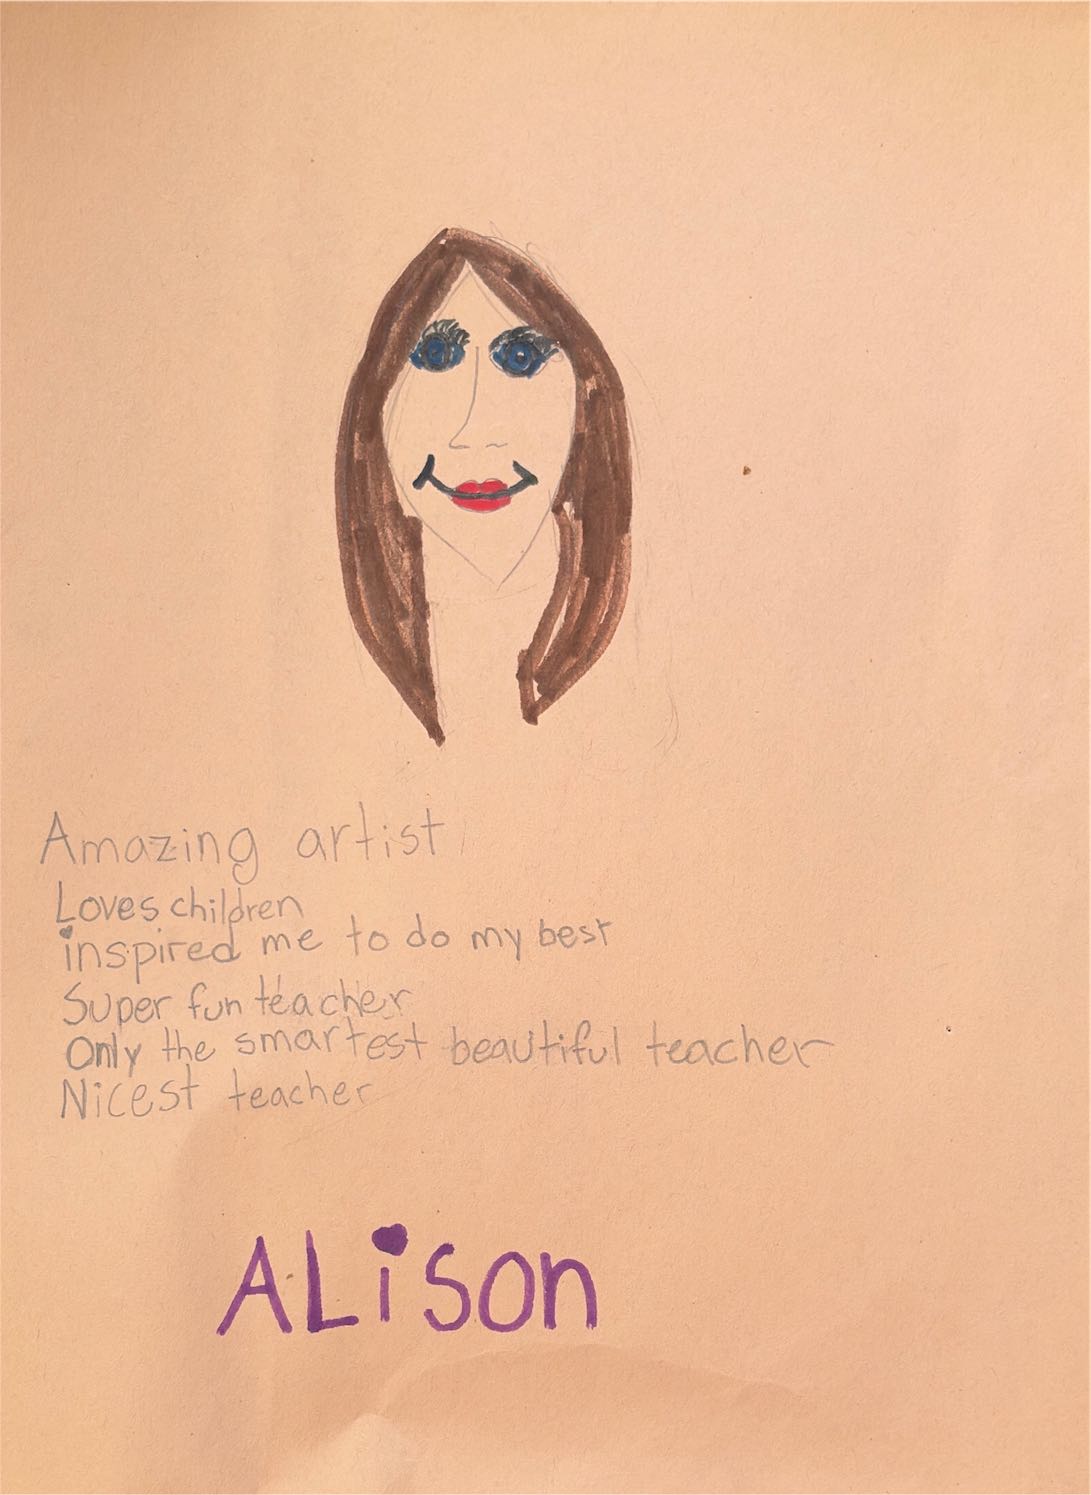 Amazing artist
Loves children
inspired me to do my best
Super fun teacher
Only the smartest beautiful teacher
Nicest teacher
ALison